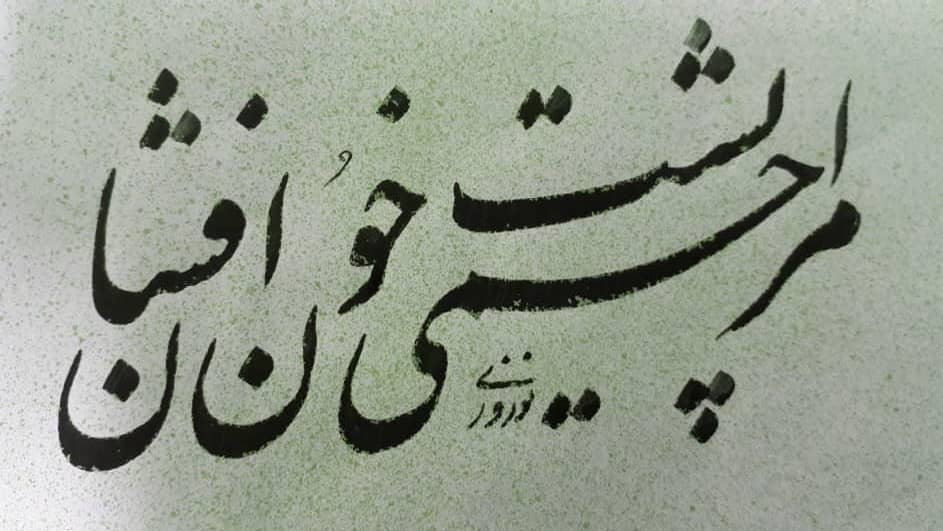 مرا چشمیست خون افشان
نوروزی